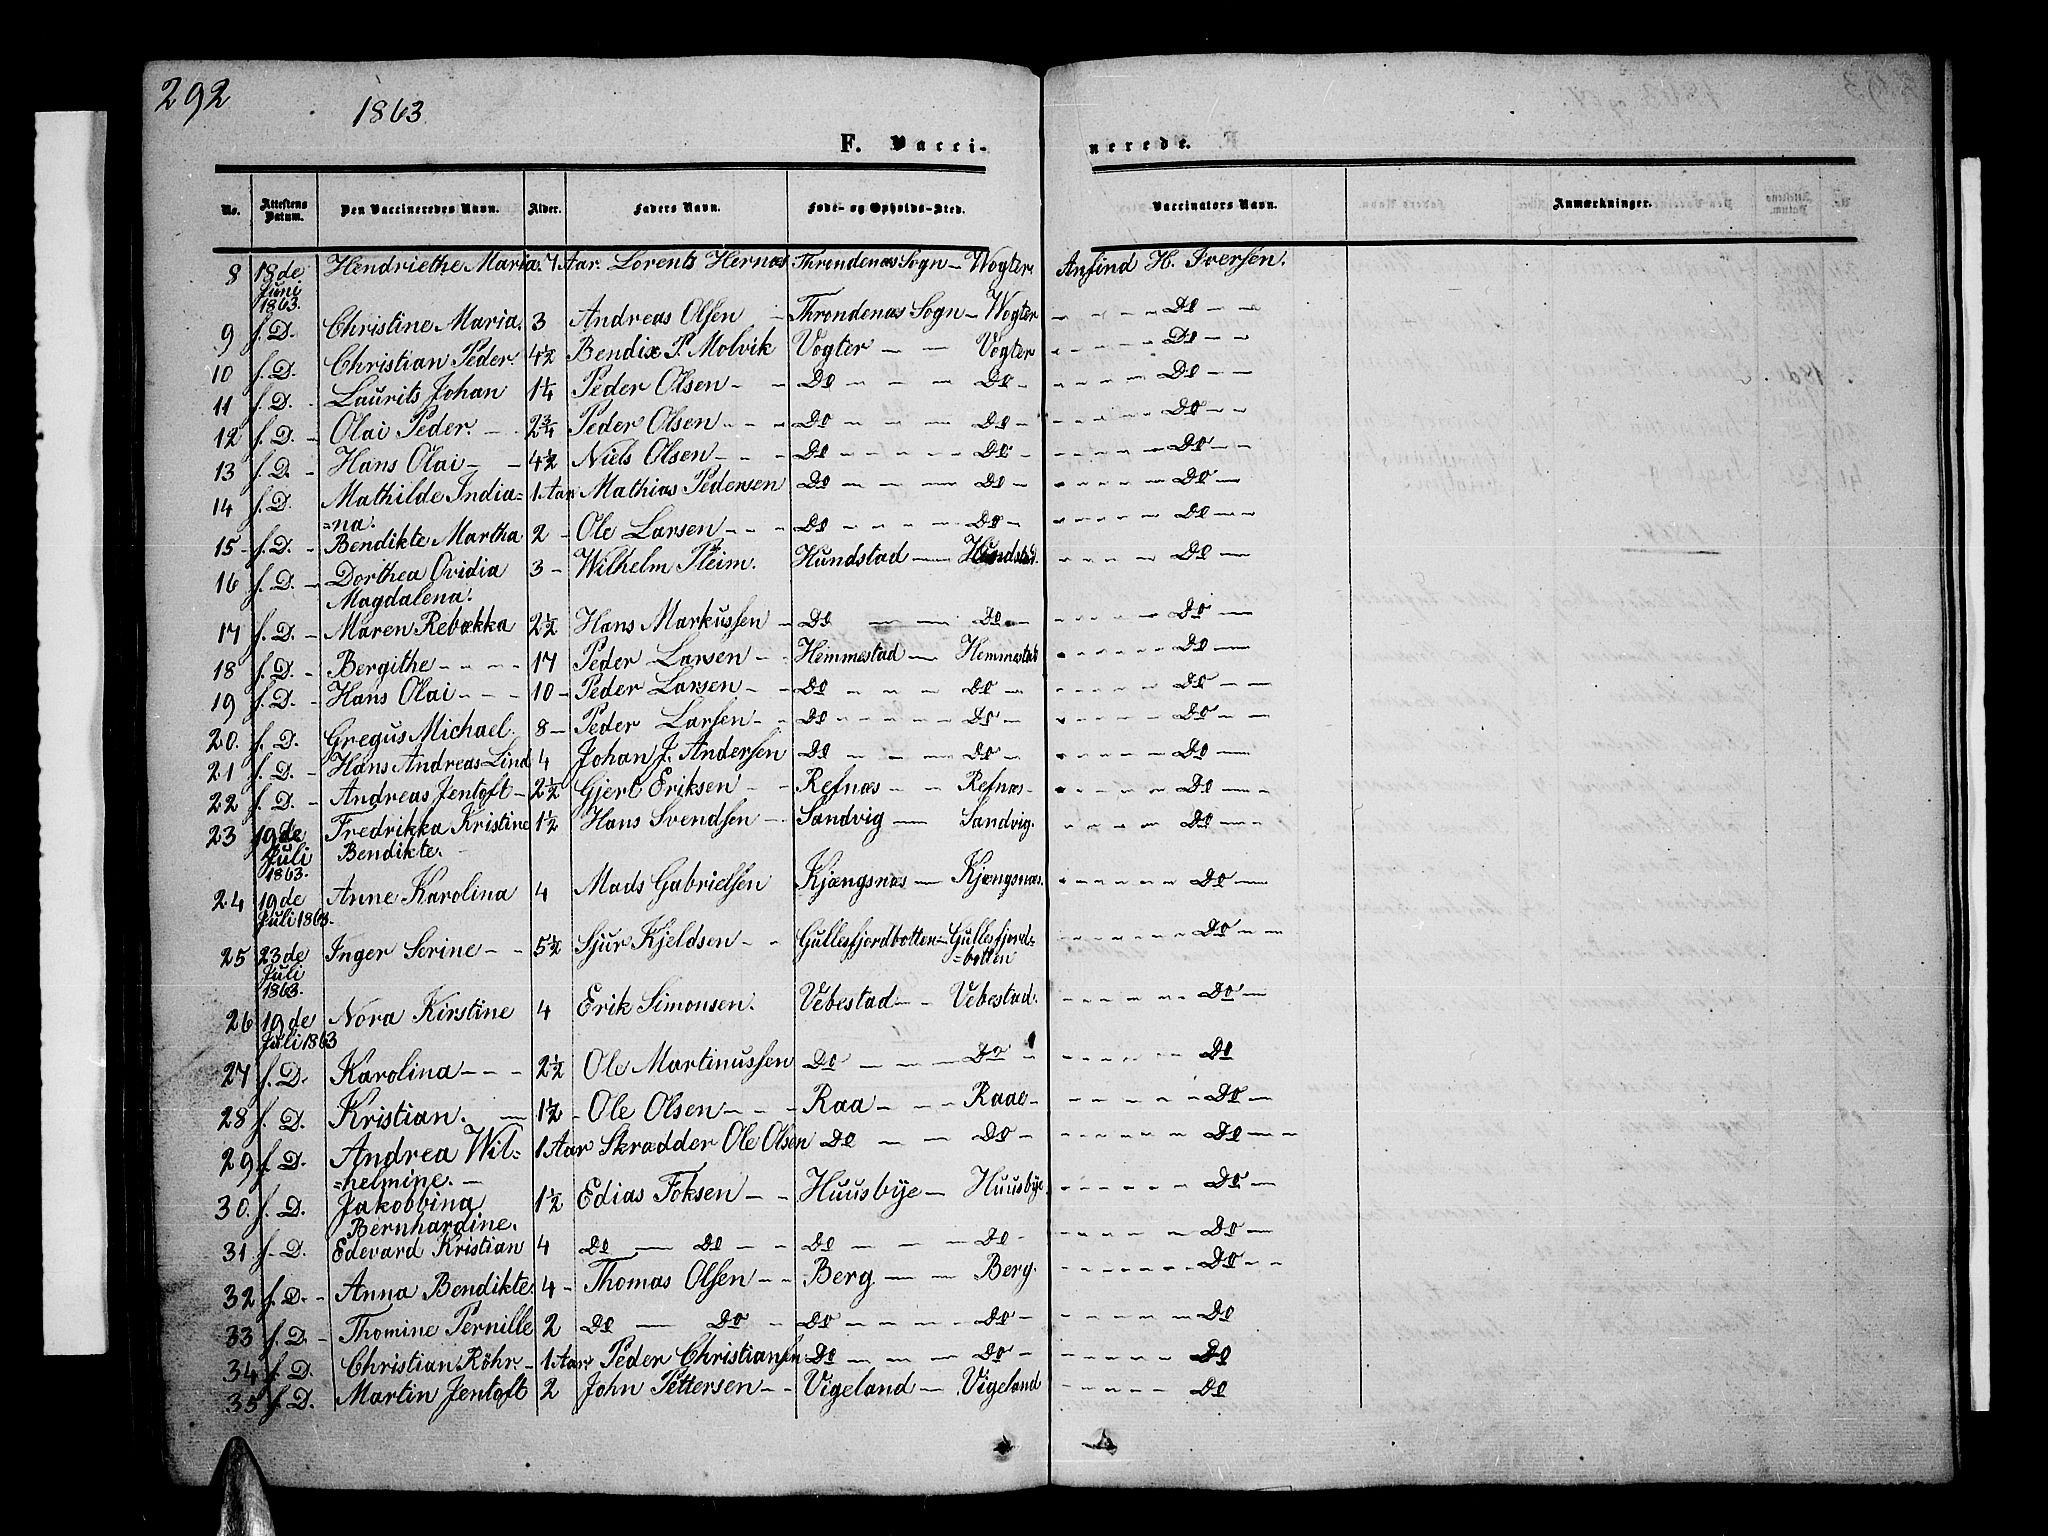 292
1863
F. Vacci-
nerede.
No. Attestens Datum. Den Vaccineredes Navn. Alder. Faders Navn. Føde- og Opholds-Sted. Vaccinators Navn. Anmærkninger.
8 18de Juni 1863. Hendriethe Maria. Aar. Lorents Hernæs Throndenæs Sogn - Vogter Anfind H. Iversen.
9 f. D. Christine Maria. 3 Andreas Olsen - Throndenæs Sogn - Wogter - - - - Do - -
10 f. D. Christian Peder. 4½ Bendix P. Molvik Vogter - - Vogter - - - - - Do - -
11 f. D. - Laurits Johan 1¼ Peder Olsen - - Do - - - Do - - - - - - Do - -
12 f. D. - Olai Peder. - - 2¾ Peder Olsen - - - Do - - - - Do - - - - - - Do - -
13 f. D - Hans Olai - - 4½ Niels Olsen - - - Do - - - - Do - - - - - - Do - -
14 f. D. Mathilde India= 1 Aar Mathias Pedersen Do - - - - Do - - - - - - Do
=na.
15 - f. D. - Bendikte Martha 2 - Ole Larsen - - - Do - - - - Do - - - - - - Do - -
16 f. D. - Dorthea Ovidia 3 - Wilhelm Pleim. Hundstad - Hundstad. - - - - Do -
Magdalena.
17 f. D. - Maren Rebækka 2½ Hans Markussen - Do - - - Do - - - - - - Do -
18 f. D. - Bergithe - - - - 17 Peder Larsen - - Hemmestad - Hemmestad - - - - - Do -
19 f. D. - Hans Olai - - - 10 - Peder Larsen - - Do - - - - Do - - - - - - Do - -
20. f. D. Gregus Michael. 8 - Peder Larsen - - Do - - - - - Do - - - - - - Do - -
21 f. D. - Hans Andreas Lind 4 Johan J. Andersen Do - - - - Do - - - - - - Do -
22 f. D. - Andreas Jentoft - 2½ Gjert Eriksen - - Refnæs - - Refnæs - - - - - - Do - -
23 19de Juli 1863. Fredrikka Kristine 1½ Hans Svendsen - - Sandvig - Sandvig. - - - - - Do - -
Bendikte. -
24 19de Juli 1863. Anne Karolina 4 Mads Gabrielsen Kjængsnæs - Kjængsnæs. - - - - - Do -
25 23de Juli 1863. Inger Serine - - 5½ Sjur Kjeldsen - - Gullesfjordbotten - Gullesfjord= - - - - - - Do - -
=botten
26 19de Juli 1863 Nora Kirstine 4 Erik Simonsen. Vebestad - - Vebestad. - - - - - Do -
27 f. D. Karolina - - - 2½ Ole Martinussen Do - - - Do - - - - - - Do
28 f. D. Kristian. - 1½ - Ole Olsen - - - Raa - - - Raae - - - - - - Do -
29 f. D. Andrea Wil= 1 Aar Skrædder Ole Olsen Do - - - Do - - - - - - Do - -
=helmine. -
30. f. D. Jakobbina 1½ Edias Foksen - - Huusbye - Huusbye - - - - - Do -
Bernhardine.
31 f. D. Edevard Kristian 4 Do - Do - - Do - - - Do - - - - - - Do -
32 f. D. - Anna Bendikte. 4 - Thomas Olsen - - Berg - - Berg. - - - - - Do - -
33 f. D - Thomine Pernille 2 Do - Do - Do - - - - Do - - - - - - Do
34 f. D. Christian Röhr - 1 Aar Peder Christiansen Do - - - Do - - - - - - Do
35 f. D. Martin Jentoft 2 John Pettersen - - Vigeland - Vigeland - - - - - Do